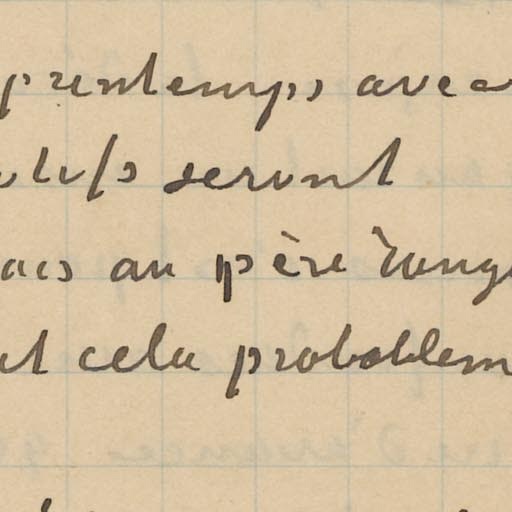 printemps avec
seront
au père Tangu
cela probablem